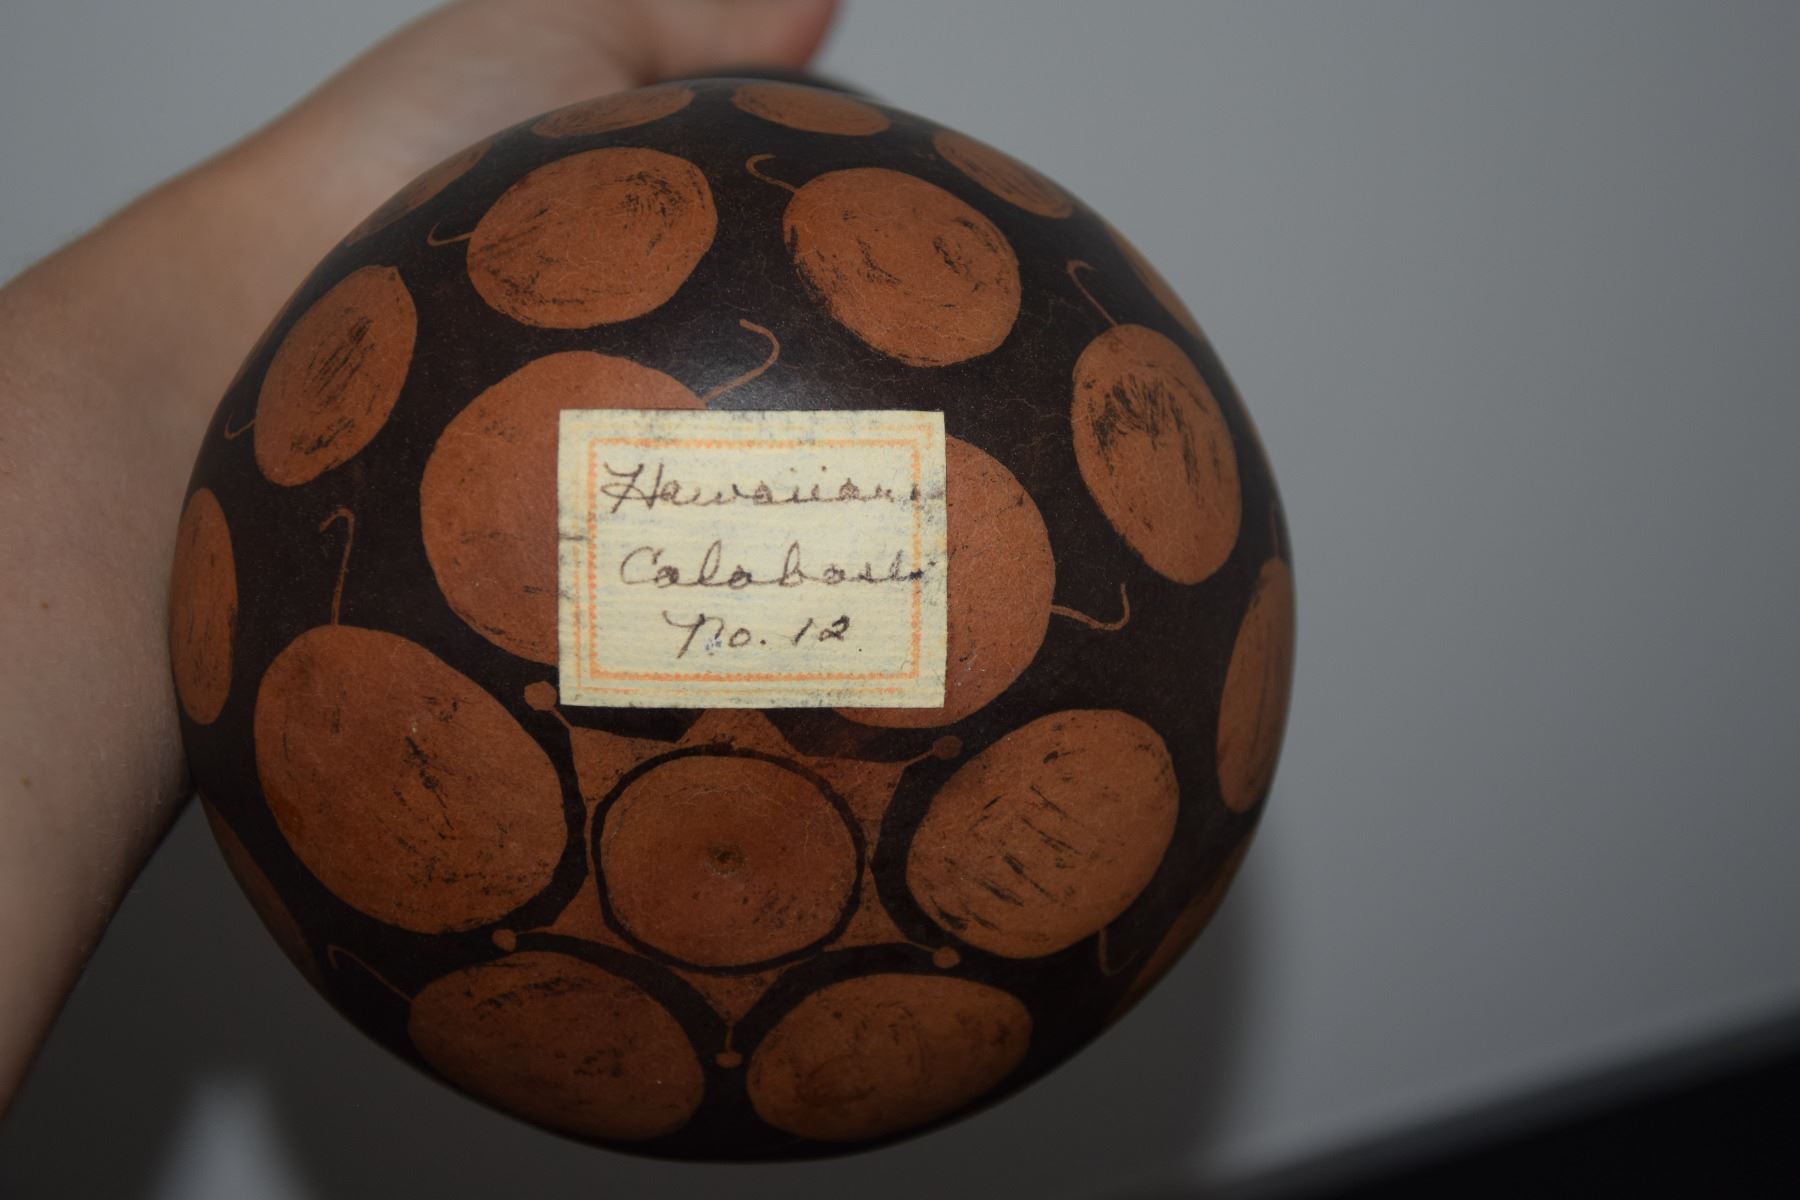 Hawaiian
Calabash
No. 12